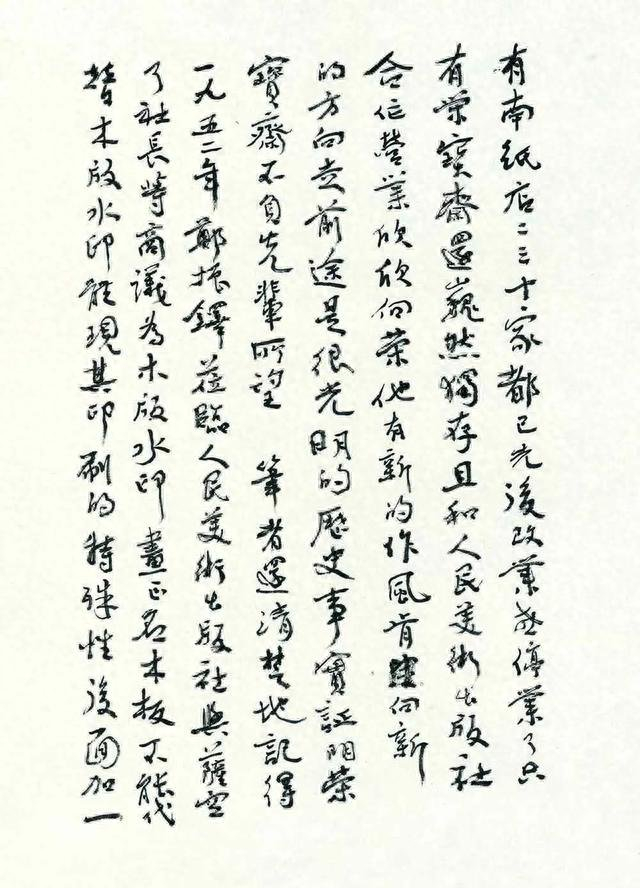 有南纸店二三十家都已先後改業或停業了只
有荣寶齋還巍然獨存且和人民美術出版社
合作營業欣欣向荣他有新的作風肯向新
的方向走前途是很光明的歷史事實証明荣
寶齋不負先輩所望　筆者還清楚地記得
一九五二年鄭振鐸蒞臨人民美術出版社與薩空
了社長等商議為木版水印畫正名木板不能代
替木版水印能現其印刷的特殊性後面加一